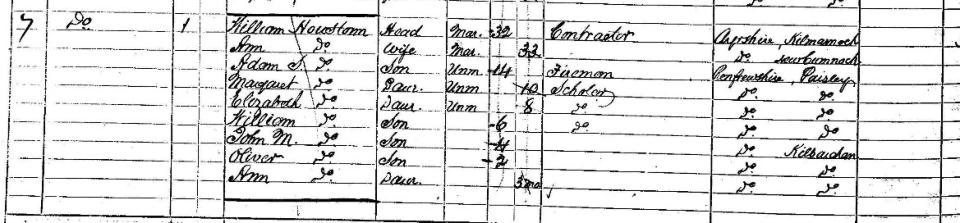 7 Do 1 William Howstonn Head Mar. 32 Contractor Ayrshire, Kilmarnock
Ann Do Wife Mar. 33 Do New Cumnock
Adam S. Do Son Unm 14 Fireman Renfrewshire, Paisley
Margaret Do Daur. Unm 10 Scholar Do Do
Elizabeth Do Daur. Unm 8 Do Do Do
William Do Son 6 Do Do Do
John M. Do Son 4 Do Kilbarchan
Oliver Do Son 2 Do Do
Ann Do Daur. 3 mo Do Do